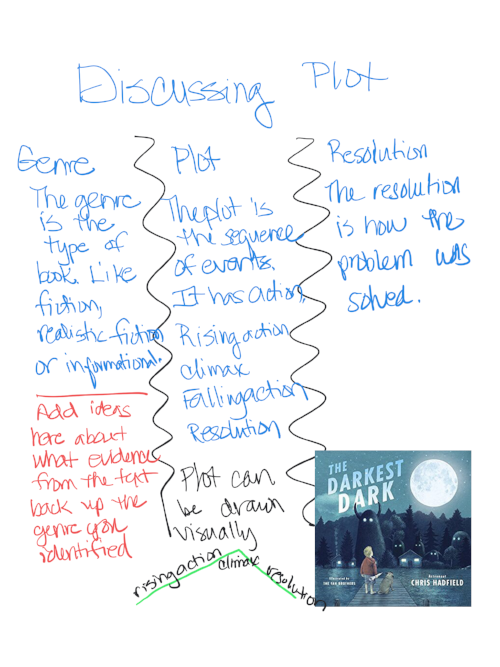 Discussing Plot
Genre
The genre
is the
type of
book. Like
fiction,
realistic fiction
or informational.
Add ideas
here about
what evidence
from the text
back up the
genre you
identified
Plot
The plot is
the sequence
of events.
It has action,
Rising action
climax
Falling action
Resolution
Plot can
be drawn
visually
rising action climax resolution
Resolution
The resolution
is how the
problem was
solved.
THE
DARKEST
DARK
Illustrated by
THE FAN BROTHERS
Astronaut
CHRIS HADFIELD